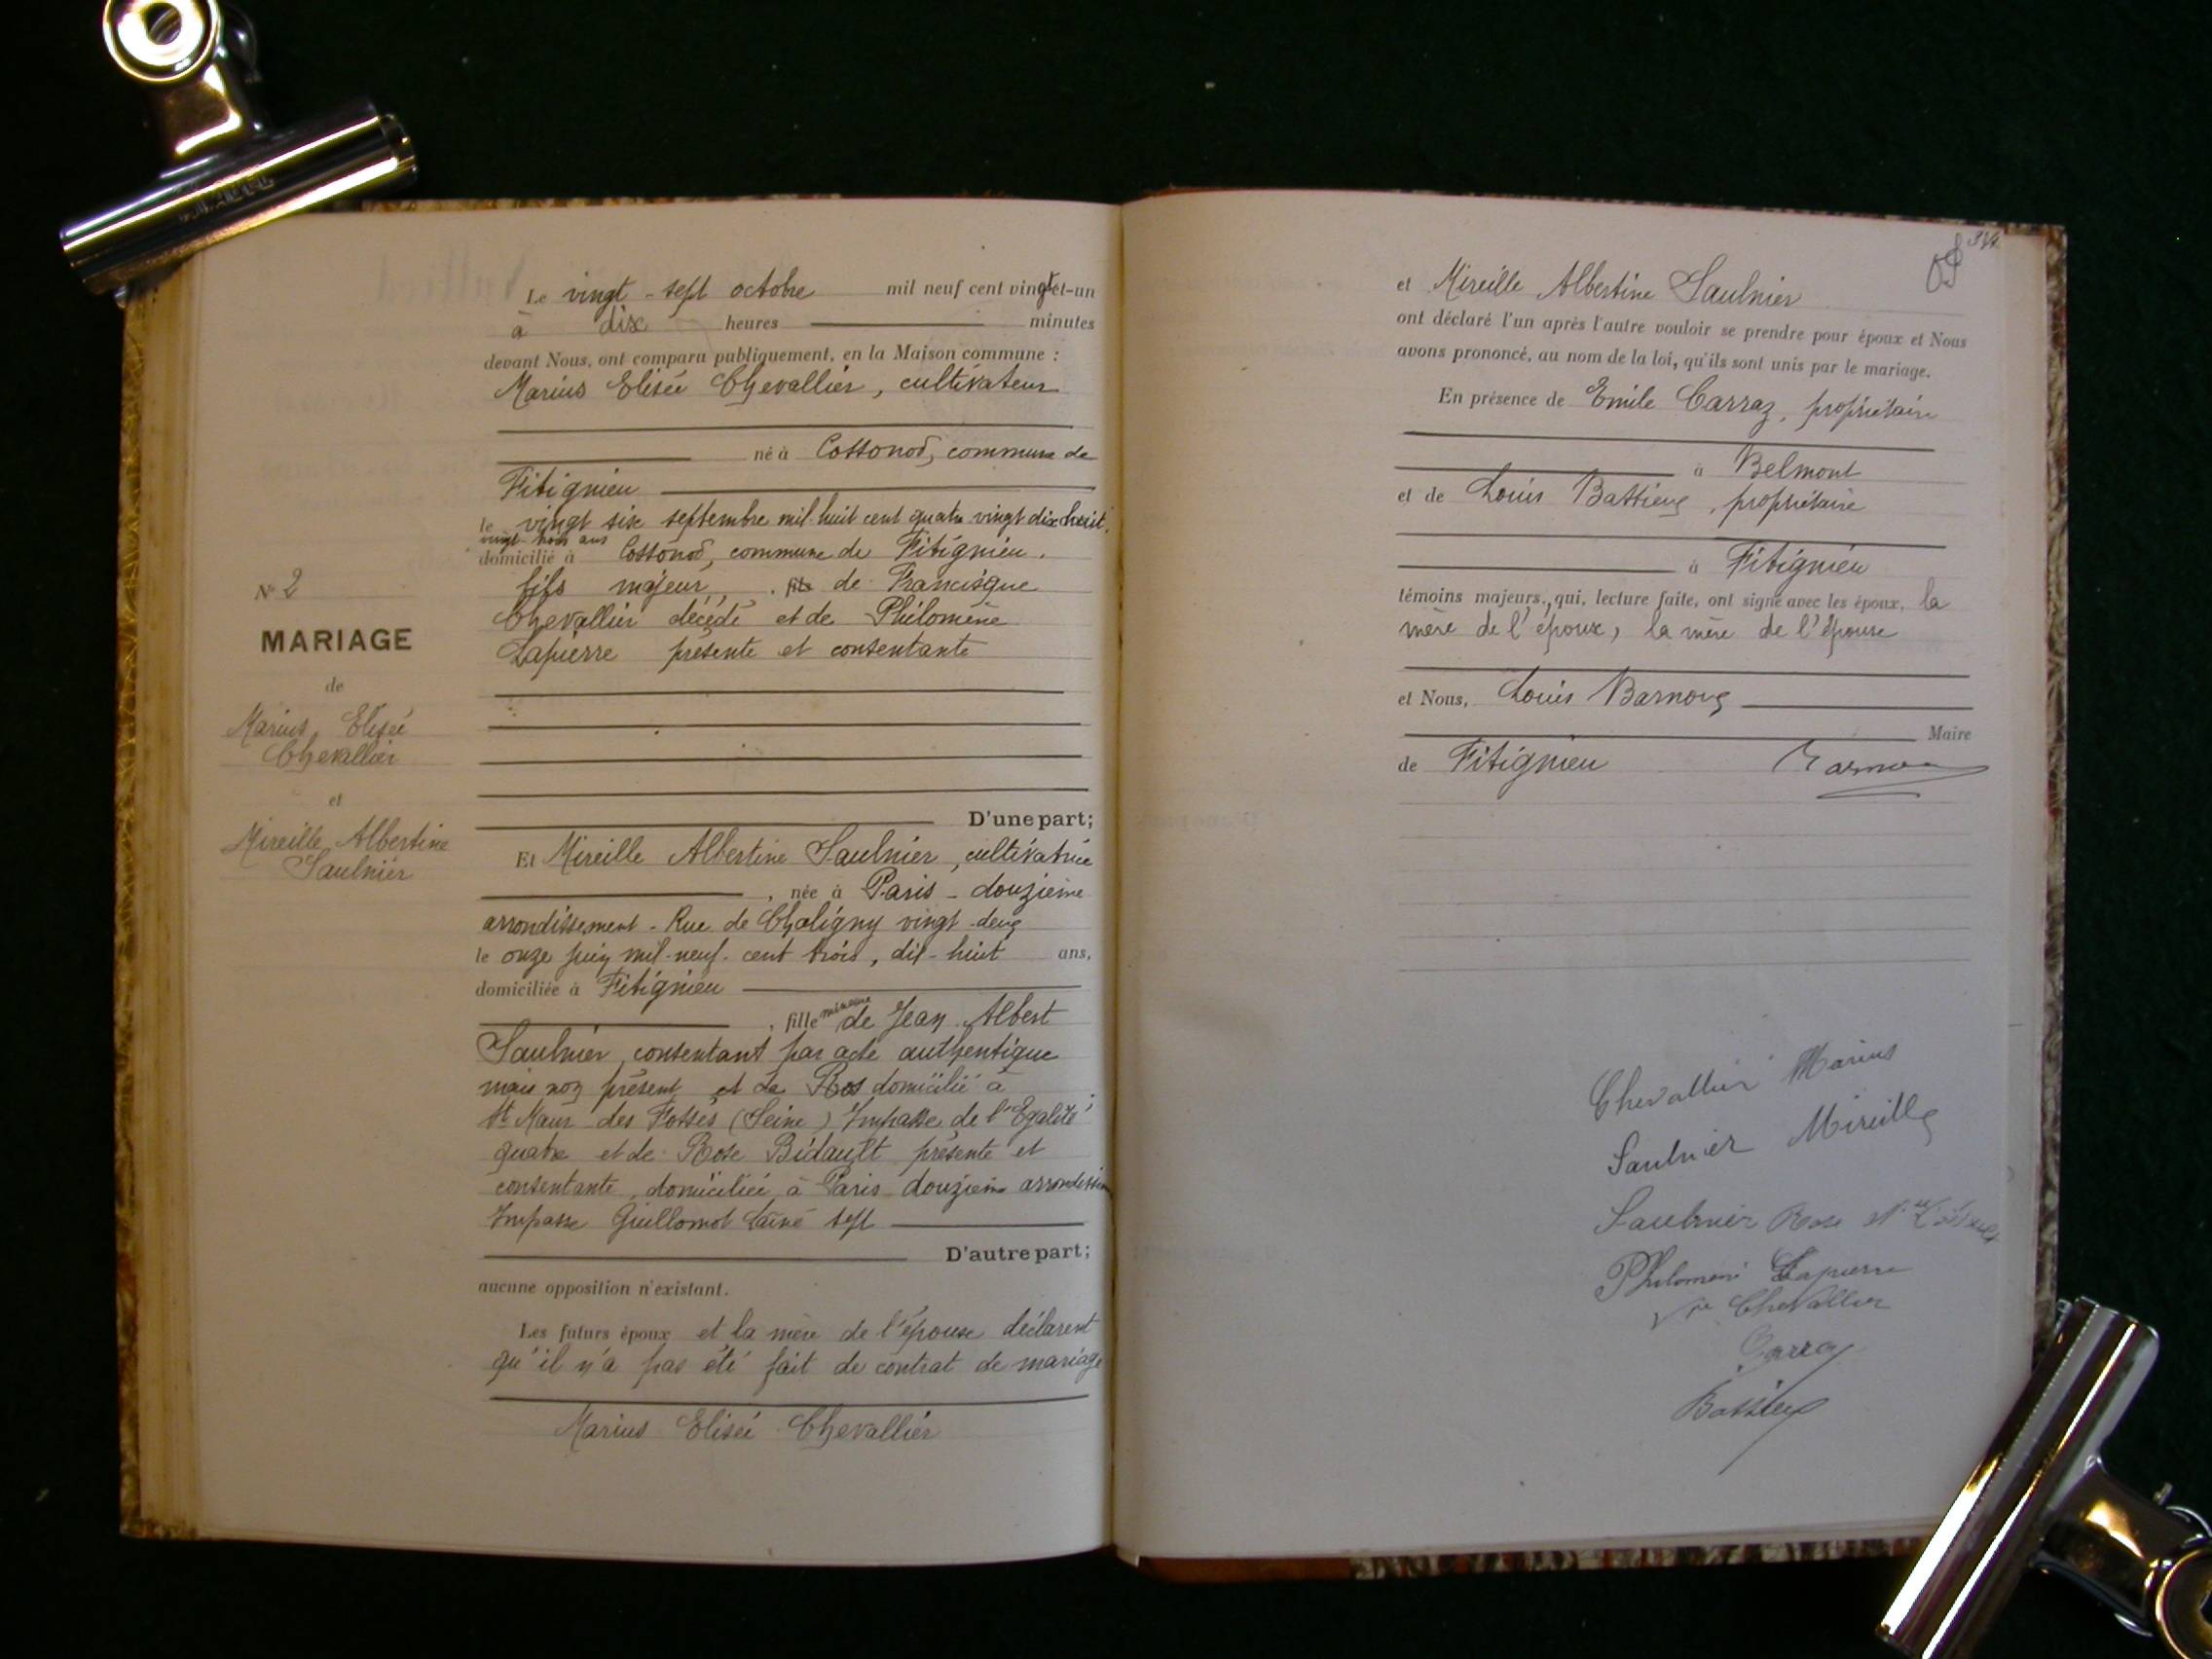 Le vingt-sept octobre mil neuf cent vingt-et-un
à dix heures minutes
devant Nous, ont comparu publiquement, en la Maison commune :
Marius Elisée Chevallier, cultivateur
né à Cossonod, commune de
Fitignieu
le vingt six septembre mil huit cent quatre vingt dix huit,
vingt trois ans
domicilié à Cossonod, commune de Fitignieu.
fils majeur, fils de Francisque
Chevallier décédé et de Philomène
Lapierre présente et consentante
D'une part;
Et Mireille Albertine Saulnier, cultivatrice
, née à Paris - douzième
arrondissement - Rue de Chaligny vingt-deux
le onze juin mil-neuf-cent trois, dix-huit ans,
domiciliée à Fitignieu
, fille mineure de Jean Albert
Saulnier, consentant par acte authentique
mais non présent et de Ros domicilié à
St Maur des Fossés (Seine) Impasse de l'Egalité
quatre et de Rose Bidault présente et
consentante, domiciliée à Paris douzième
Impasse Guillomot Lainé sept
D'autre part;
aucune opposition n'existant.
Les futurs époux et la mère de l'épouse déclarent
qu'il n'a pas été fait de contrat de mariage
Marius Elisée Chevallier
N° 2
MARIAGE
de
Marius Elisée
Chevallier
et
Mireille Albertine
Saulnier
et Mireille Albertine Saulnier
ont déclaré l'un après l'autre vouloir se prendre pour époux et Nous
avons prononcé, au nom de la loi, qu'ils sont unis par le mariage.
En présence de Emile Carraz, propriétaire
à Belmont
et de Louis Battieux, propriétaire
à Fitignieu
témoins majeurs, qui, lecture faite, ont signé avec les époux, la
mère de l'époux, la mère de l'épouse
et Nous, Louis Barnoux
Maire
de Fitignieu
Chevallier Marius
Saulnier Mireille
Saulnier Rose
Philomène Lapierre
Vve Chevallier
Carraz
Battieux